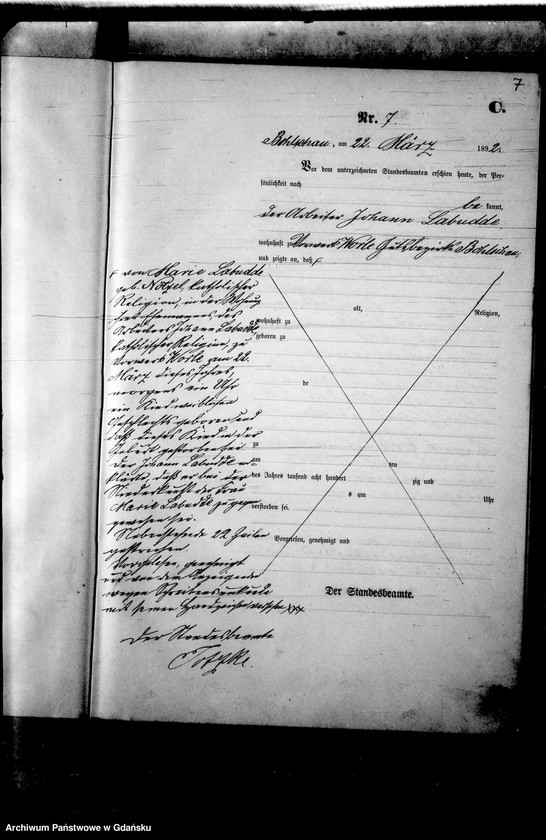 7
C.
Nr. 7.
Bohlschau, am 22. März 1892.
Vor dem unterzeichneten Standesbeamten erschien heute, der Per-
sönlichkeit nach
be kannt,
der Arbeiter Johann Labudde
wohnhaft zu Vorwerk Worle Gutsbezirk Bohlschau,
und zeigte an, daß
von Marie Labudde
geb. Nötzel, katholischer
Religion, in der Wohnung
ihres Ehemannes, des
Arbeiters Johann Labudde,
katholischer Religion, zu
Vorwerk Worle am 22.
März dieses Jahres,
morgens ein Uhr
ein Kind weiblichen
Geschlechts geboren und
daß dieses Kind in der
Geburt gestorben sei.
Der Johann Labudde er-
klärte, daß er bei der
Niederkunft der Frau
Marie Labudde zugegen
gewesen sei.
Nebenstehende 22 Zeilen
gestrichen.
Vorgelesen, genehmigt
und von dem Anzeigenden
wegen Schreibensunkunde
mit seinem Handzeichen versehen xxx
Der Standesbeamte
Totzke.
alt, Religion,
wohnhaft zu
geboren zu
de
zu
am ten
des Jahres tausend acht hundert zig und
s um Uhr
verstorben sei.
Vorgelesen, genehmigt und
Der Standesbeamte.
Archiwum Państwowe w Gdańsku